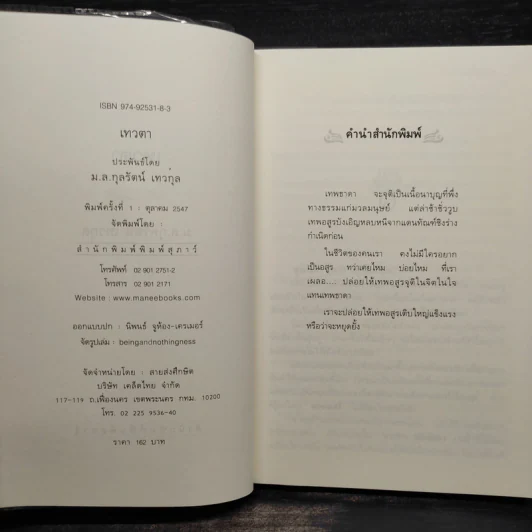 ISBN 974-92531-8-3
เทวตา
ประพันธ์โดย
ม.ล.กุลรัตน์ เทวกุล
พิมพ์ครั้งที่ 1 : ตุลาคม 2547
จัดพิมพ์โดย :
สำนักพิมพ์พิมพ์สุภาว์
โทรศัพท์ 02 901 2751-2
โทรสาร 02 901 2171
Website : www.maneebooks.com
ออกแบบปก : นิพนธ์ จูห้อง-เครเมอร์
จัดรูปเล่ม : beingandnothingness
จัดจำหน่ายโดย : สายส่งศึกษิต
บริษัท เคล็ดไทย จำกัด
117-119 ถ.เฟื่องนคร เขตพระนคร กทม. 10200
โทร. 02 225 9536-40
ราคา 162 บาท
คำนำสำนักพิมพ์
เทพธาดา จะจุติเป็นเนื้อนาบุญที่พึ่ง
ทางธรรมแก่มวลมนุษย์ แต่ล่าช้าชั่ววูบ
เทพอสูรบังเอิญหลบหนีจากแดนทัณฑ์ชิงร่าง
กำเนิดก่อน
ในชีวิตของคนเรา คงไม่มีใครอยาก
เป็นอสูร ทว่าเคยไหม บ่อยไหม ที่เรา
เผลอ.... ปล่อยให้เทพอสูรจุติในจิตในใจ
แทนเทพธาดา
เราจะปล่อยให้เทพอสูรเติบใหญ่แข็งแรง
หรือว่าจะหยุดยั้ง